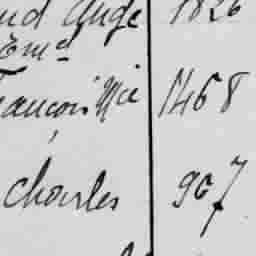 Ange 1826
Emd
ançois Mie 1468
Charles 907